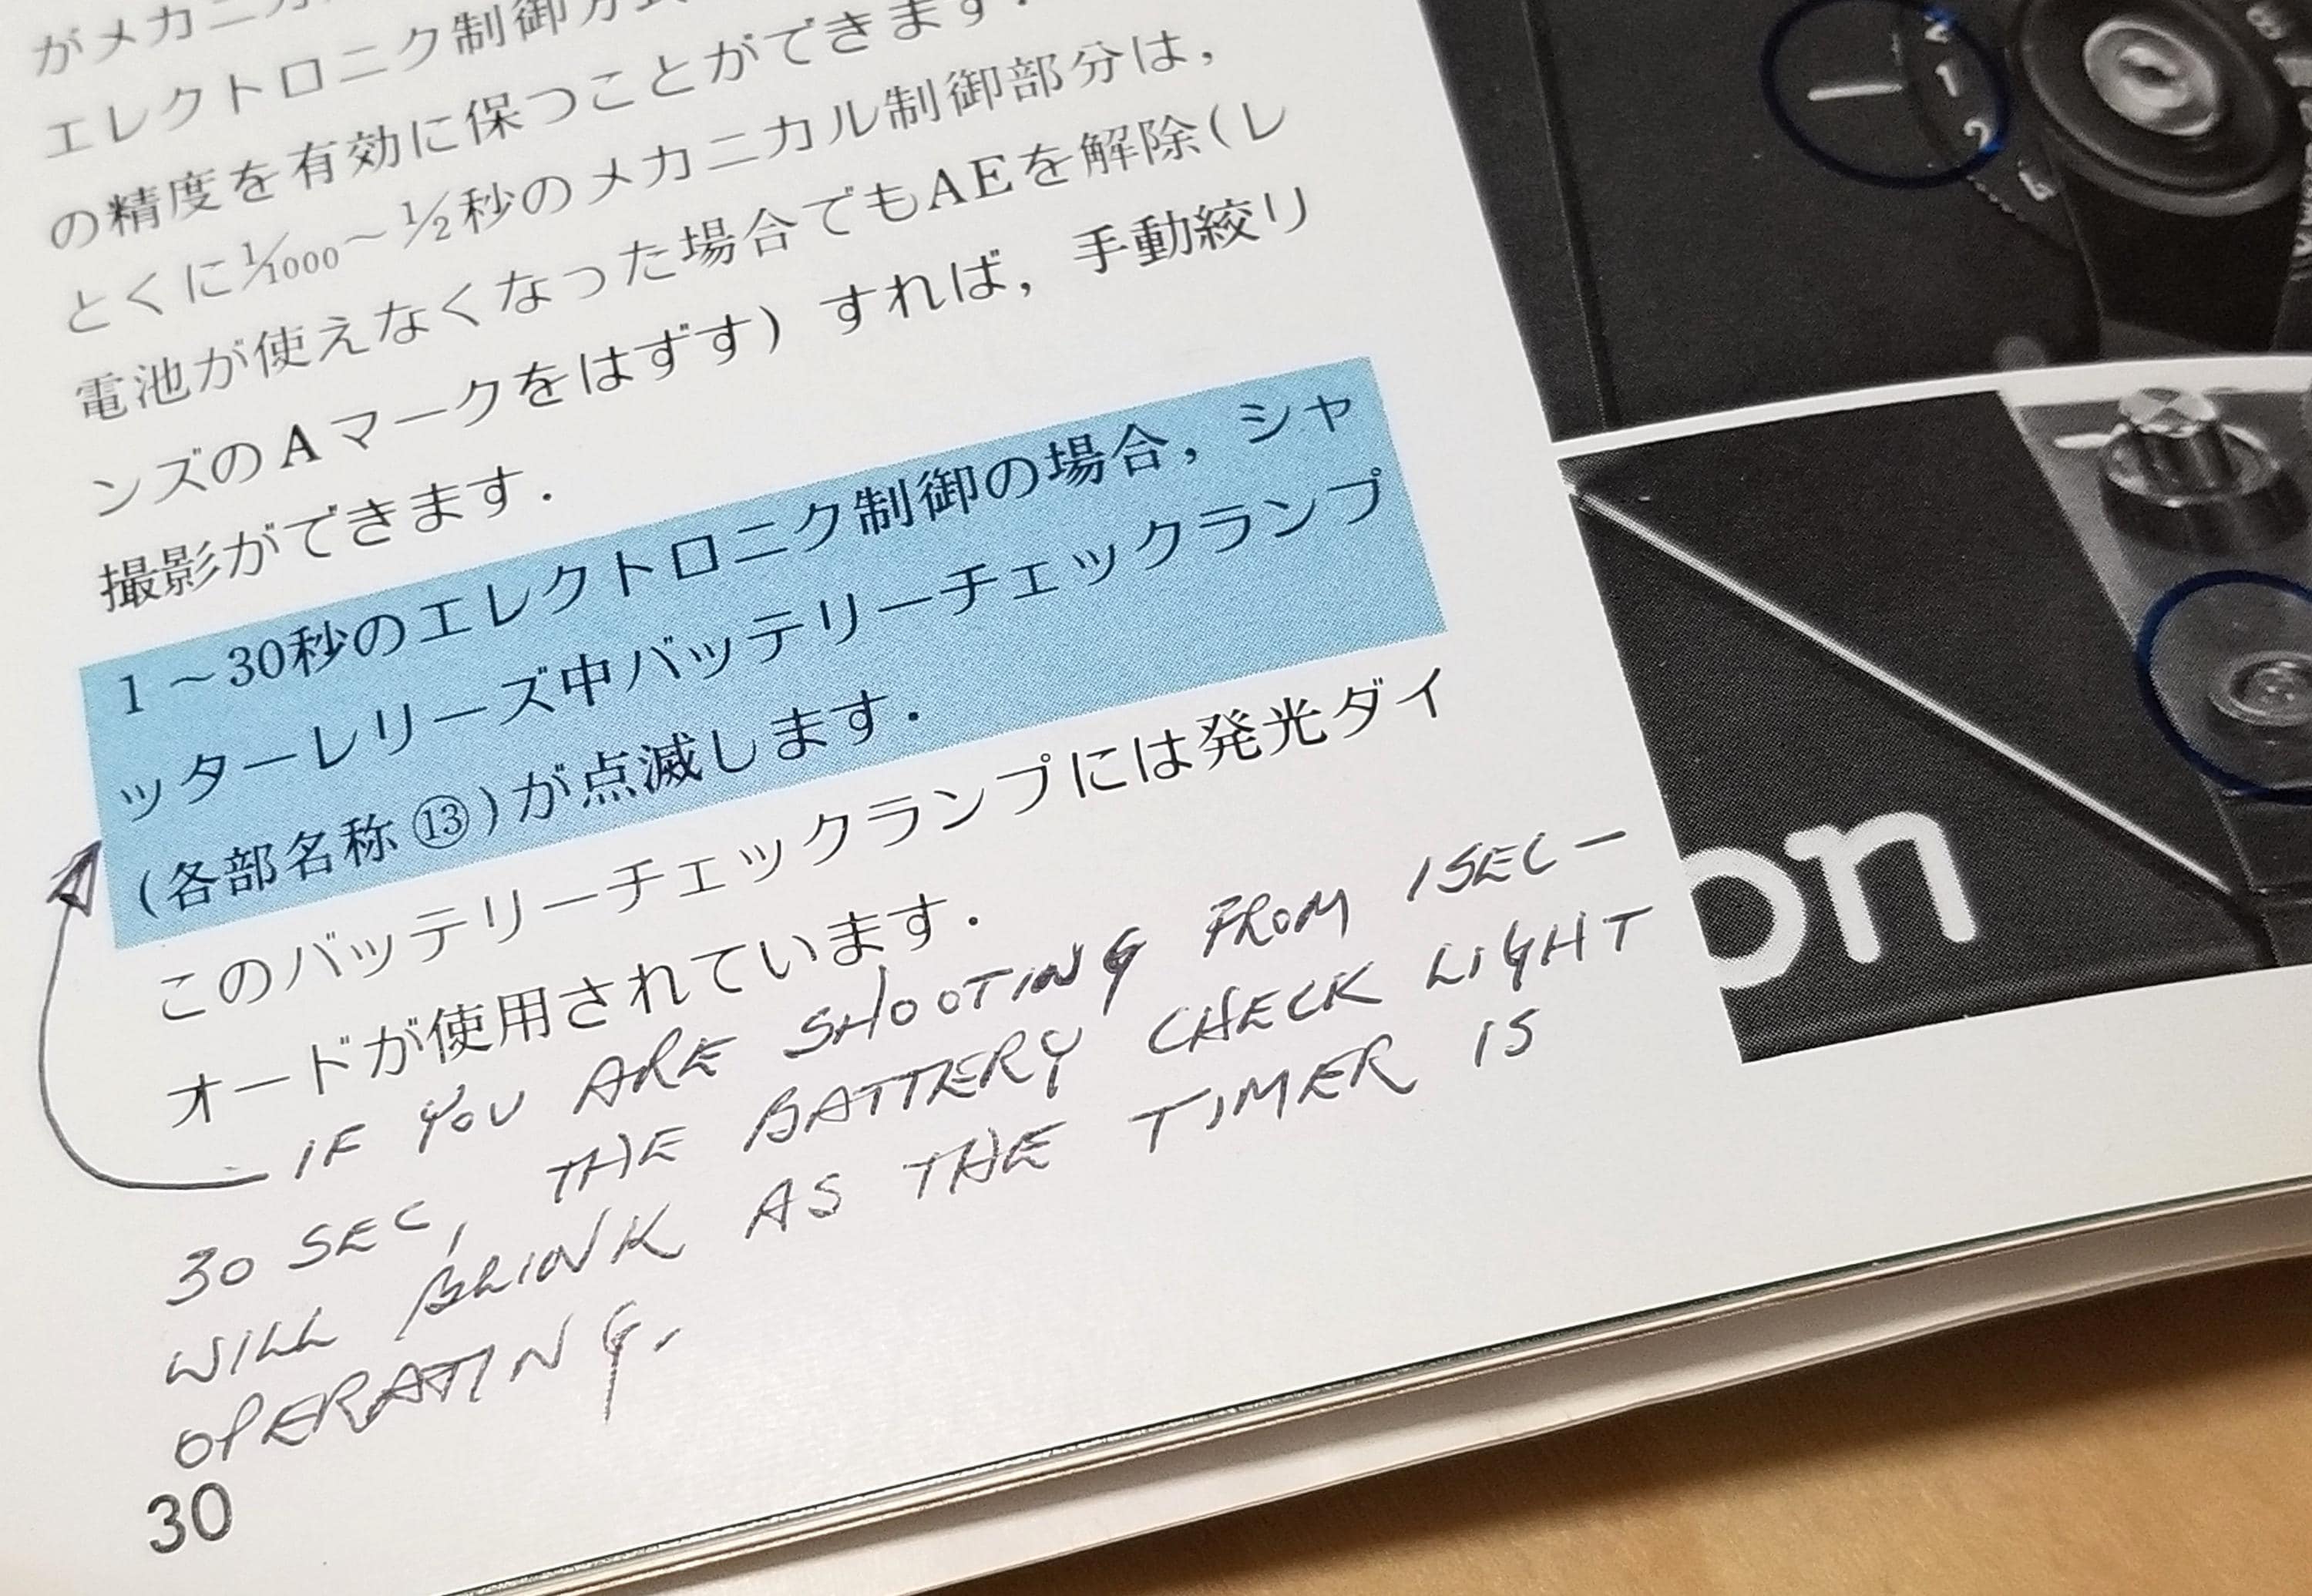 がメカニカ
エレクトロニク制御方式
の精度を有効に保つことができます.
とくに1/1000～1/2秒のメカニカル制御部分は,
電池が使えなくなった場合でもAEを解除(レ
ンズのAマークをはずす) すれば, 手動絞り
撮影ができます.
1～30秒のエレクトロニク制御の場合, シャ
ッターレリーズ中バッテリーチェックランプ
(各部名称⑬)が点滅します.
このバッテリーチェックランプには発光ダイ
オードが使用されています.
IF YOU ARE SHOOTING FROM 1SEC-
30 SEC, THE BATTERY CHECK LIGHT
WILL BLINK AS THE TIMER IS
OPERATING.
30
2
1
2
4
on